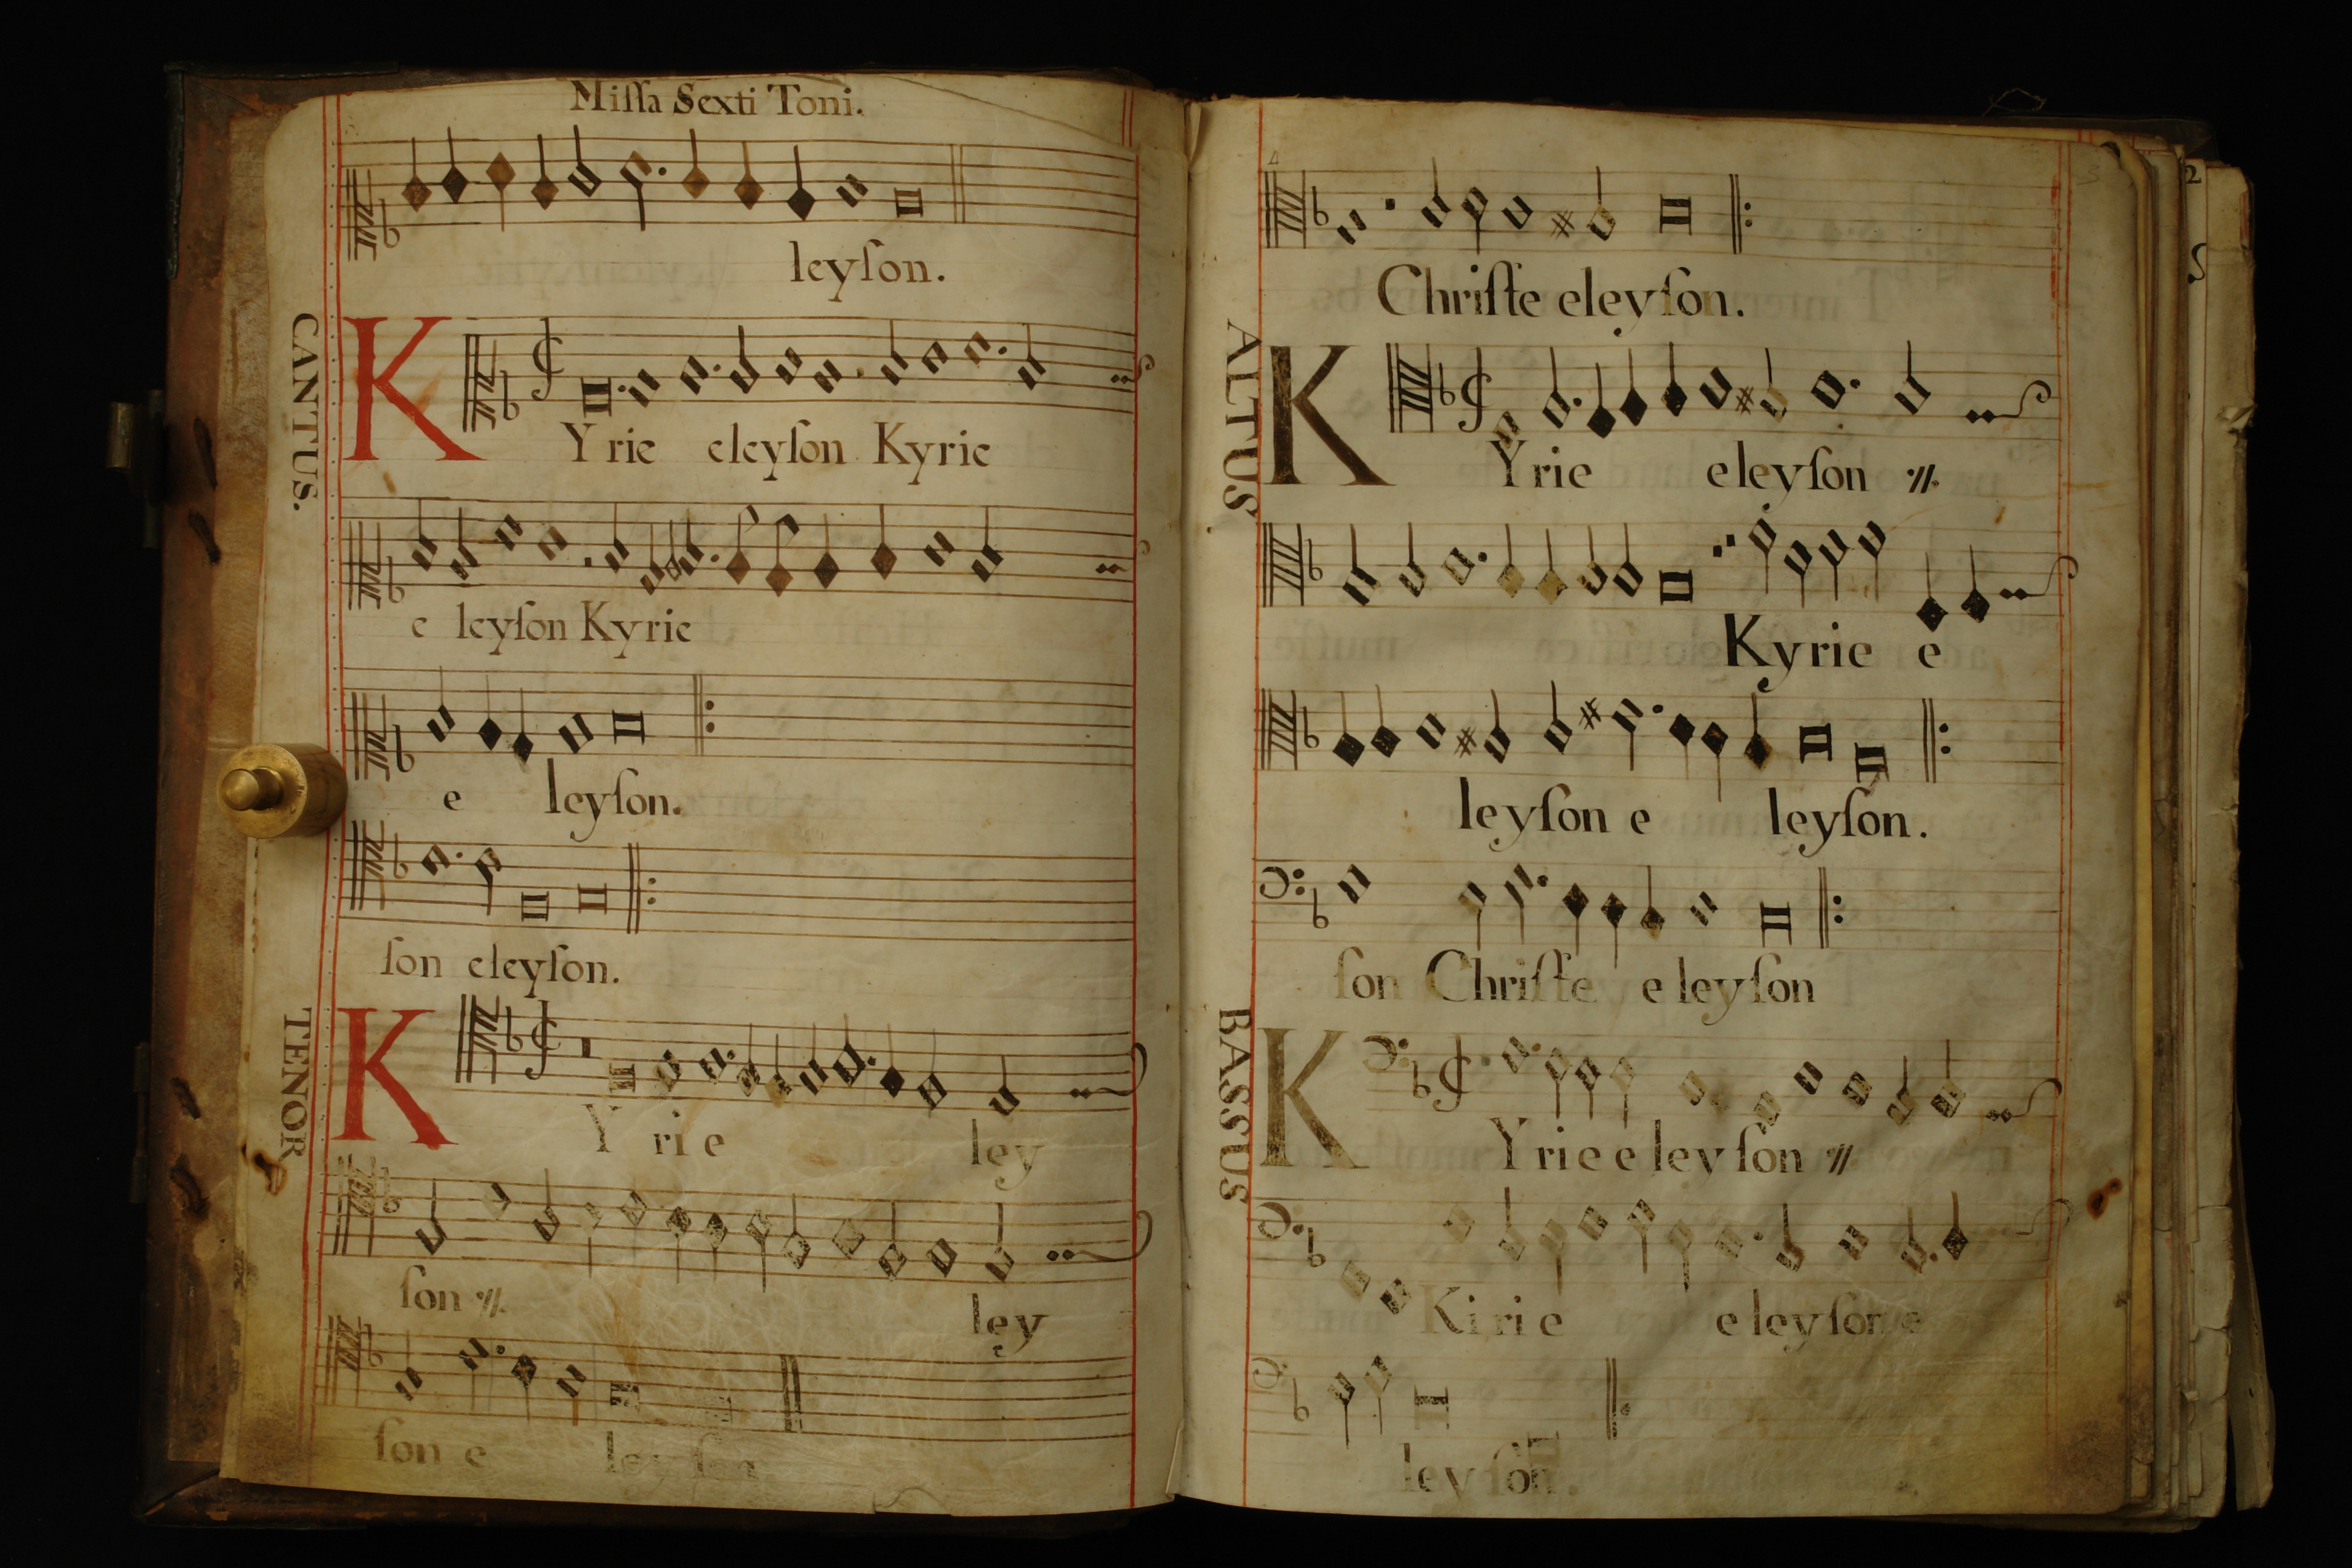 Miſſa Sexti Toni.
leyſon.
CANTUS.
KYrie eleyſon Kyrie
e leyſon Kyrie
e leyſon.
ſon eleyſon.
TENOR
KYrie ley
ſon ley
ſon e ley ſon.
Chriſte eleyſon.
ALTUS
KYrie eleyſon
Kyrie e
leyſon e leyſon.
ſon Chriſte e leyſon
BASSUS
KYrie e leyſon
Kirie e leyſon e
leyſon.
2